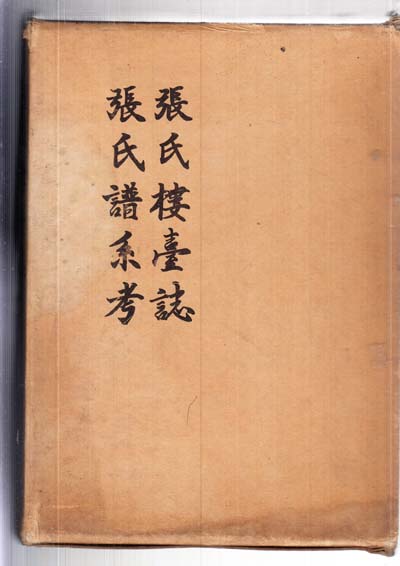 張氏樓臺誌
張氏譜系考